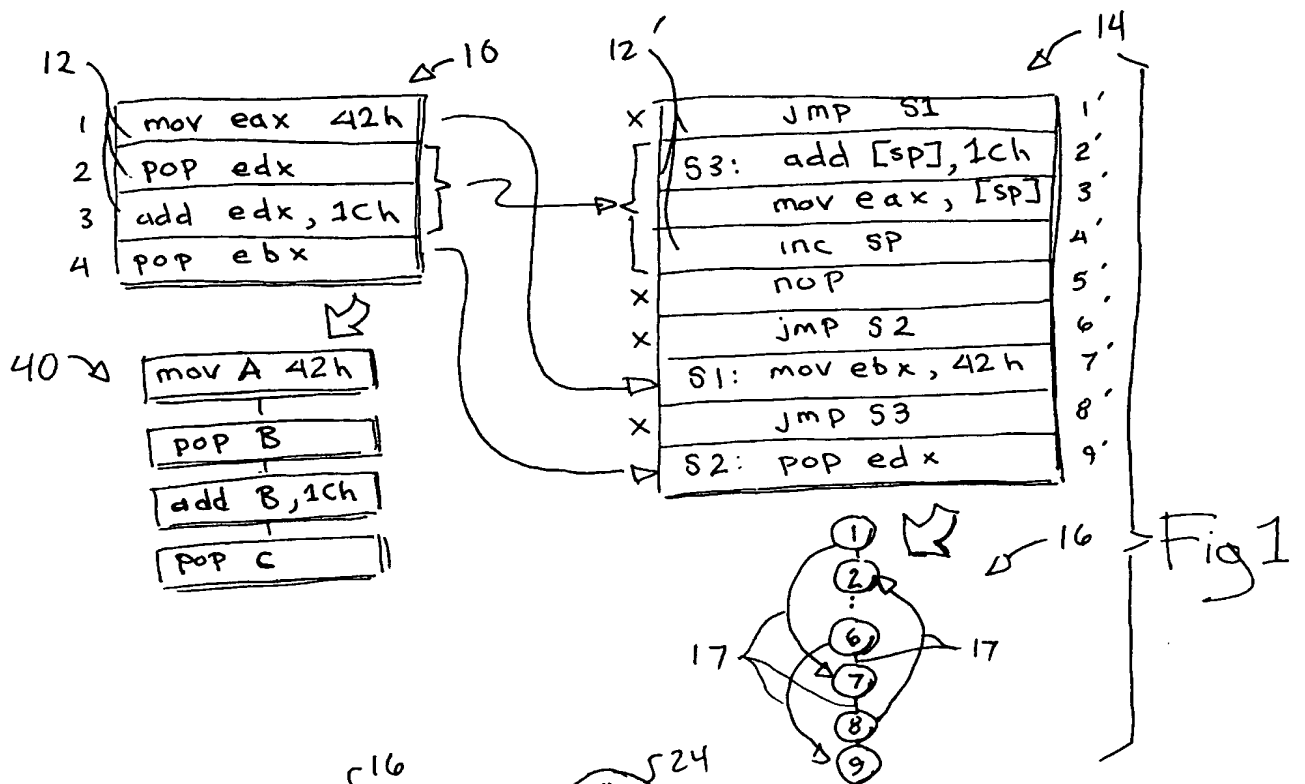 12
10
1 mov eax 42h
2 pop edx
3 add edx, 1Ch
4 pop ebx
40
mov A 42h
pop B
add B, 1Ch
pop C
12'
14
x jmp S1 1'
S3: add [sp], 1Ch 2'
mov eax, [sp] 3'
inc sp 4'
x nop 5'
x jmp S2 6'
S1: mov ebx, 42h 7'
x jmp S3 8'
S2: pop edx 9'
1
2
6
7
8
9
16
17
17
Fig 1
16
24